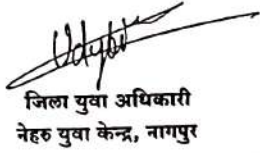 जिला युवा अधिकारी
नेहरु युवा केन्द्र, नागपुर